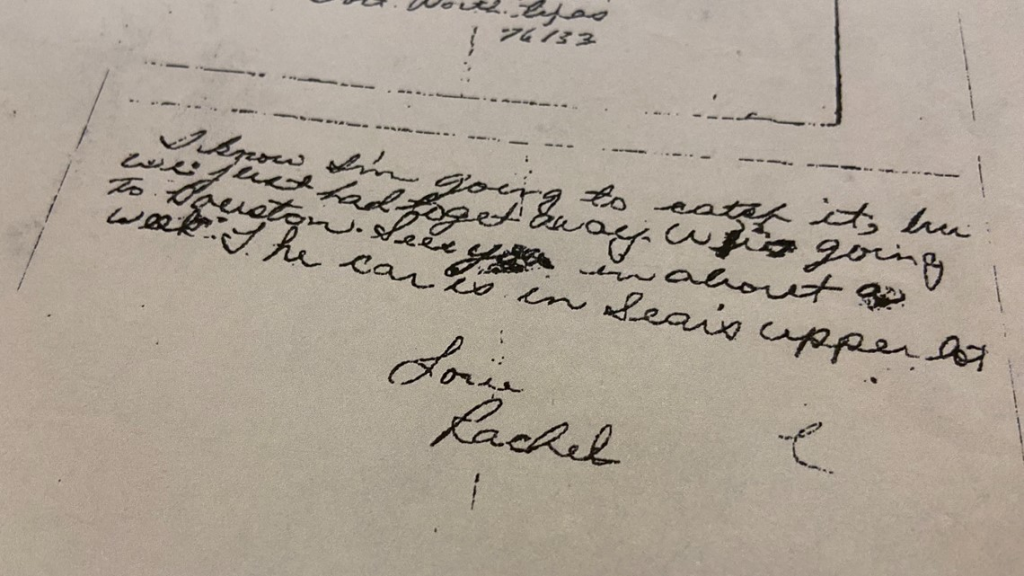 Fort Worth Texas
76133
I know I'm going to catch it, but
we just had to get away. We're going
to Houston. See you in about a
week. The car is in Sears upper lot
Love
Rachel